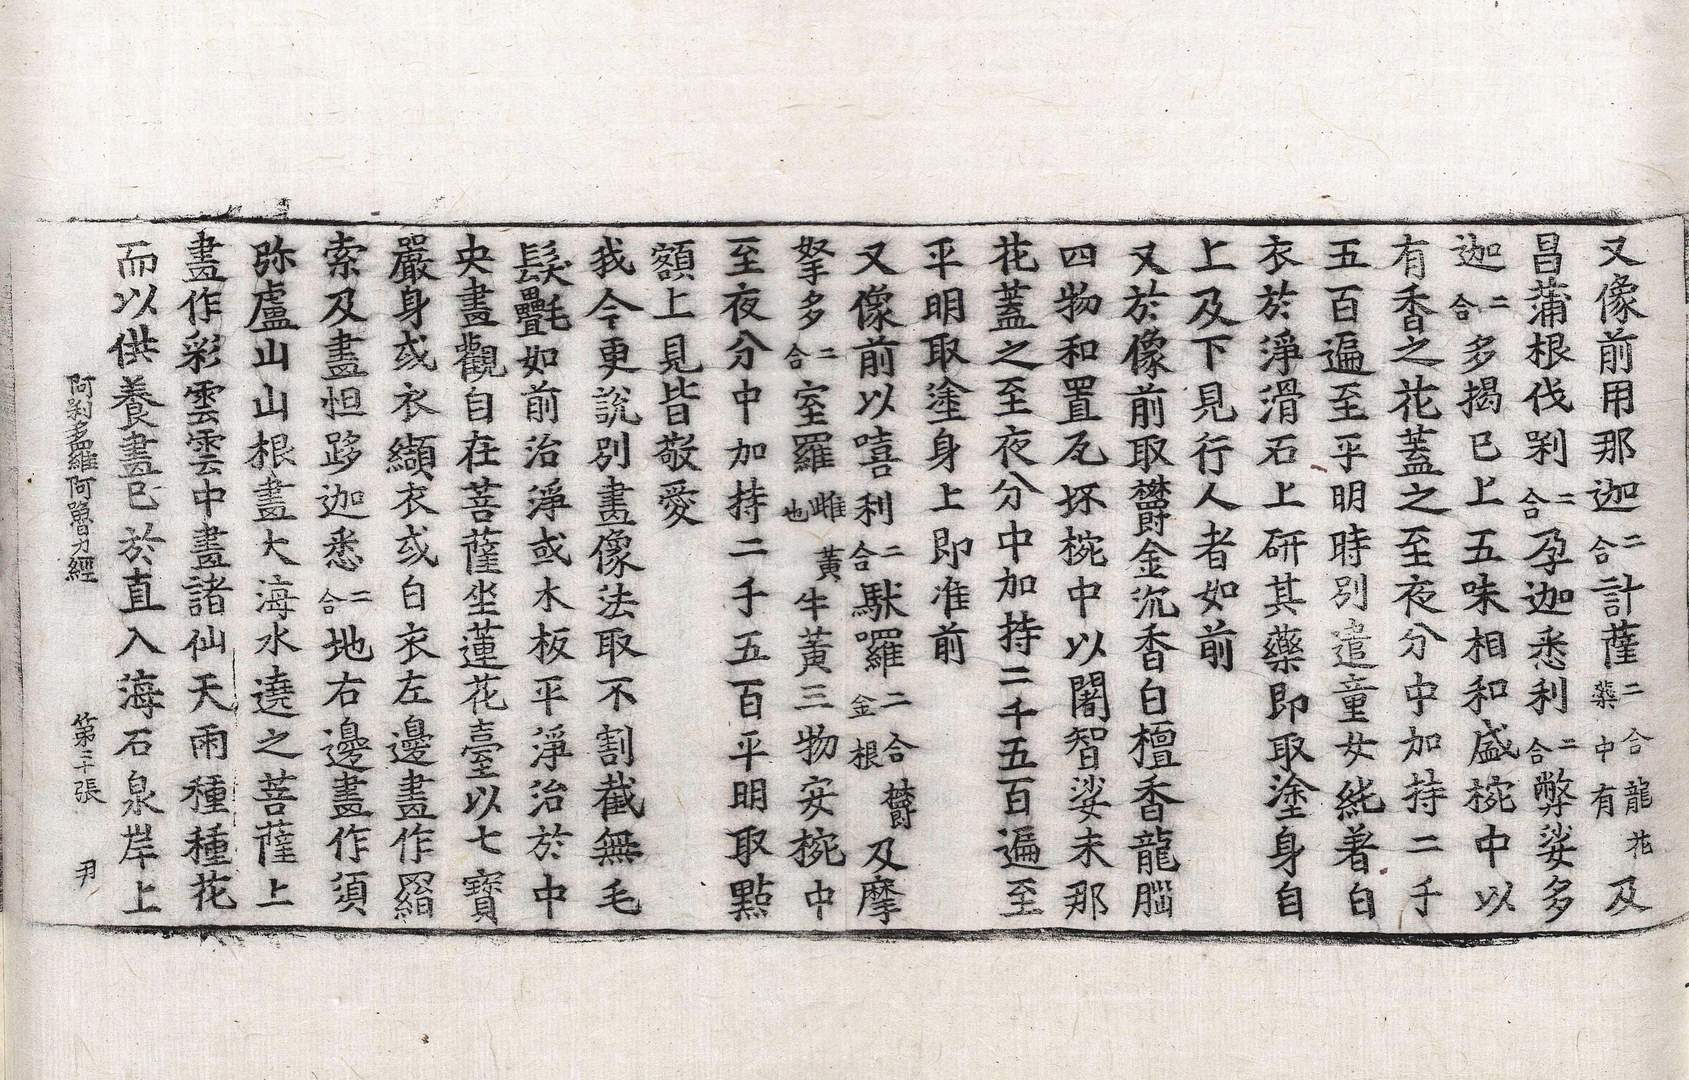 又像前用那迦二合計薩二合龍花蘂中有及
昌蒲根伐剁二合孕迦悉利二合弊娑多
迦二合多揭已上五味相和盛椀中以
有香之花蓋之至夜分中加持二千
五百遍至平明時別遣童女純著白
衣於淨滑石上研其藥即取塗身自
上及下見行人者如前
又於像前取欝金沉香白檀香龍腦
四物和置瓦坏椀中以闍智娑末那
花蓋之至夜分中加持二千五百遍至
平明取塗身上即准前
又像前以嘻利二合䭾囉二合欝金根及摩
拏多二合室羅雌黃也牛黃三物安椀中
至夜分中加持二千五百平明取點
額上見皆敬愛
我今更說別畫像法取不割截無毛
髮㲲如前治淨或木板平淨治於中
央畫觀自在菩薩坐蓮花臺以七寶
嚴身或衣纈衣或白衣左邊畫作羂
索及畫怛跢迦悉二合地右邊畫作須
弥盧山山根畫大海水遶之菩薩上
畫作彩雲雲中畫諸仙天雨種種花
而以供養畫已於直入海石泉岸上
阿剁多羅阿嚕力經 第三十張 尹